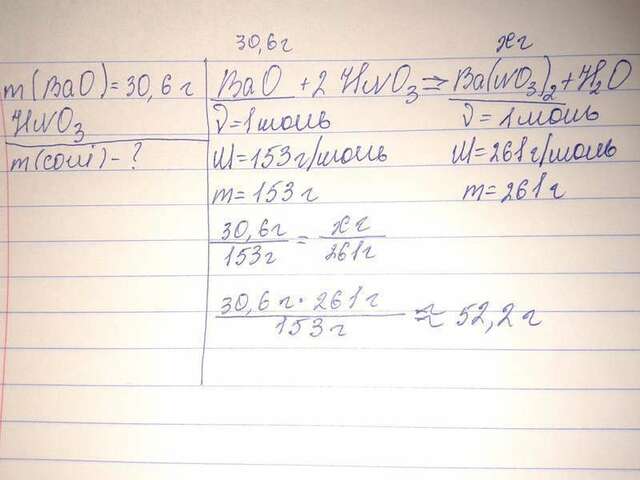 30,6г xг
m(BaO)=30,6г
HNO₃
m(соли)-?
BaO + 2HNO₃ ⇒ Ba(NO₃)₂ + H₂O
ν=1моль ν=1моль
M=153г/моль M=261г/моль
m=153г m=261г
30,6г/153г = xг/261г
30,6г·261г/153г ≈ 52,2г